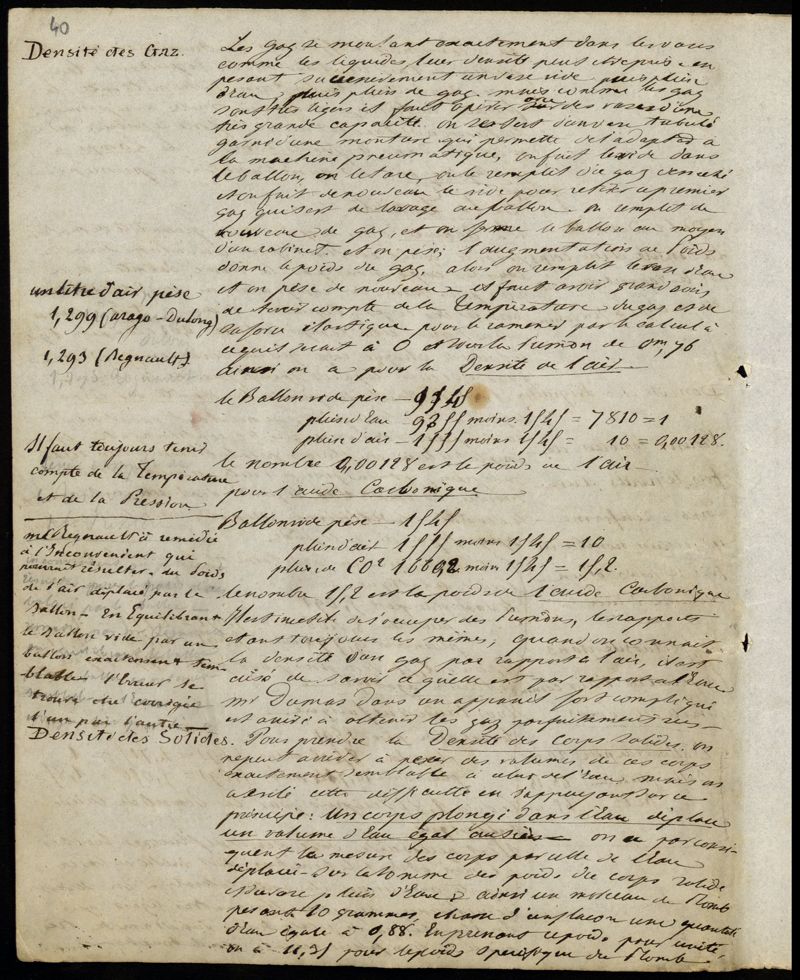 40
Densité des Gaz.
Les gaz se moulant exactement dans les vases
comme les liquides leur densité peut être prise en
pesant successivement un vase vide, puis plein
d'eau, puis plein de gaz. mais comme les gaz
sont très légers il faut opérer sur des vases d'une
très grande capacité. on se sert d'un vase tubulé
garni d'une monture qui permette de l'adapter à
la machine pneumatique, on fait le vide dans
le ballon, on le tare, on le remplit du gaz
et on fait de nouveau le vide pour retirer ce premier
gaz qui sert de lavage au ballon. on remplit de
nouveau de gaz, et on ferme le ballon au moyen
d'un robinet. et on pèse; l'augmentation de Poids
donne le poids du gaz, alors on remplit le vase d'eau
et on pèse de nouveau - il faut avoir grand soin
de tenir compte de la Température du gaz et de
sa force élastique pour le ramener par le calcul à
ce qu'il serait à 0 et sous la pression de 0m,76
ainsi on a pour la Densité de l'air
un litre d'air pèse
1,299 (arago - Dulong)
1,293 (Regnault)
le Ballon vide pèse - 1545
plein d'eau 9355 moins 1545 = 7810 = 1
plein d'air - 1555 moins 1545 = 10 = 0,00128.
le nombre 0,00128 est le poids de l'air
Il faut toujours tenir
compte de la Température
et de la Pression
pour l'acide Carbonique
Ballon vide pèse - 1545
plein d'air 1555 moins 1545 = 10
plein de CO² moins 1545 = 15,2.
le nombre 15,2 est le poids de l'acide Carbonique
mr Regnault à remédié
à l'Inconvénient qui
pourrait résulter du Poids
de l'air déplacé par le
Ballon - En Equilibrant
le Ballon vide par un
ballon exactement sem-
blable l'Erreur se
trouve être corrigée
l'un par l'autre
Il est inutile de s'occuper des Pressions, les rapports
étant toujours les mêmes, quand on connait
la densité d'un gaz par rapport à l'air, il est
aisé de savoir ce qu'elle est par rapport à l'Eau
mr Dumas dans un appareil fort compliqué
est arrivé à obtenir les gaz parfaitement secs
Densité des Solides.
Pour prendre la Densité des corps solides, on
ne peut arriver à peser des volumes de ces corps
exactement semblable à celui de l'Eau mais on
a évité cette difficulté en s'appuyant sur ce
principe: Un corps plongé dans l'Eau déplace
un volume d'Eau égal au sien - on a par consé-
quent la mesure des corps par celle de l'Eau
déplacée - sur la somme des poids du corps solide
et du vase plein d'Eau; ainsi un morceau de Plomb
pesant 10 grammes, chasse d'un flacon une quantité
d'Eau égale à 0,88. En prenant ce poids pour unité
on a 11,35 pour le poids spécifique du Plomb